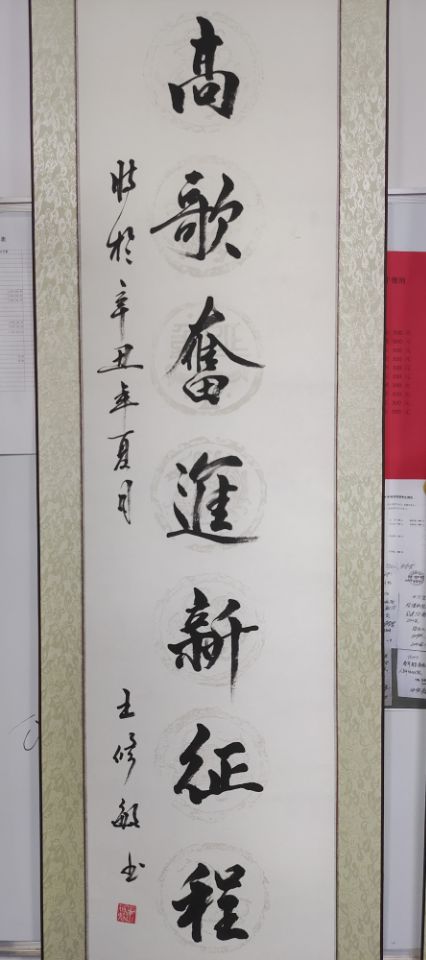 高歌奮進新征程
時於辛丑年夏月
王修敏书